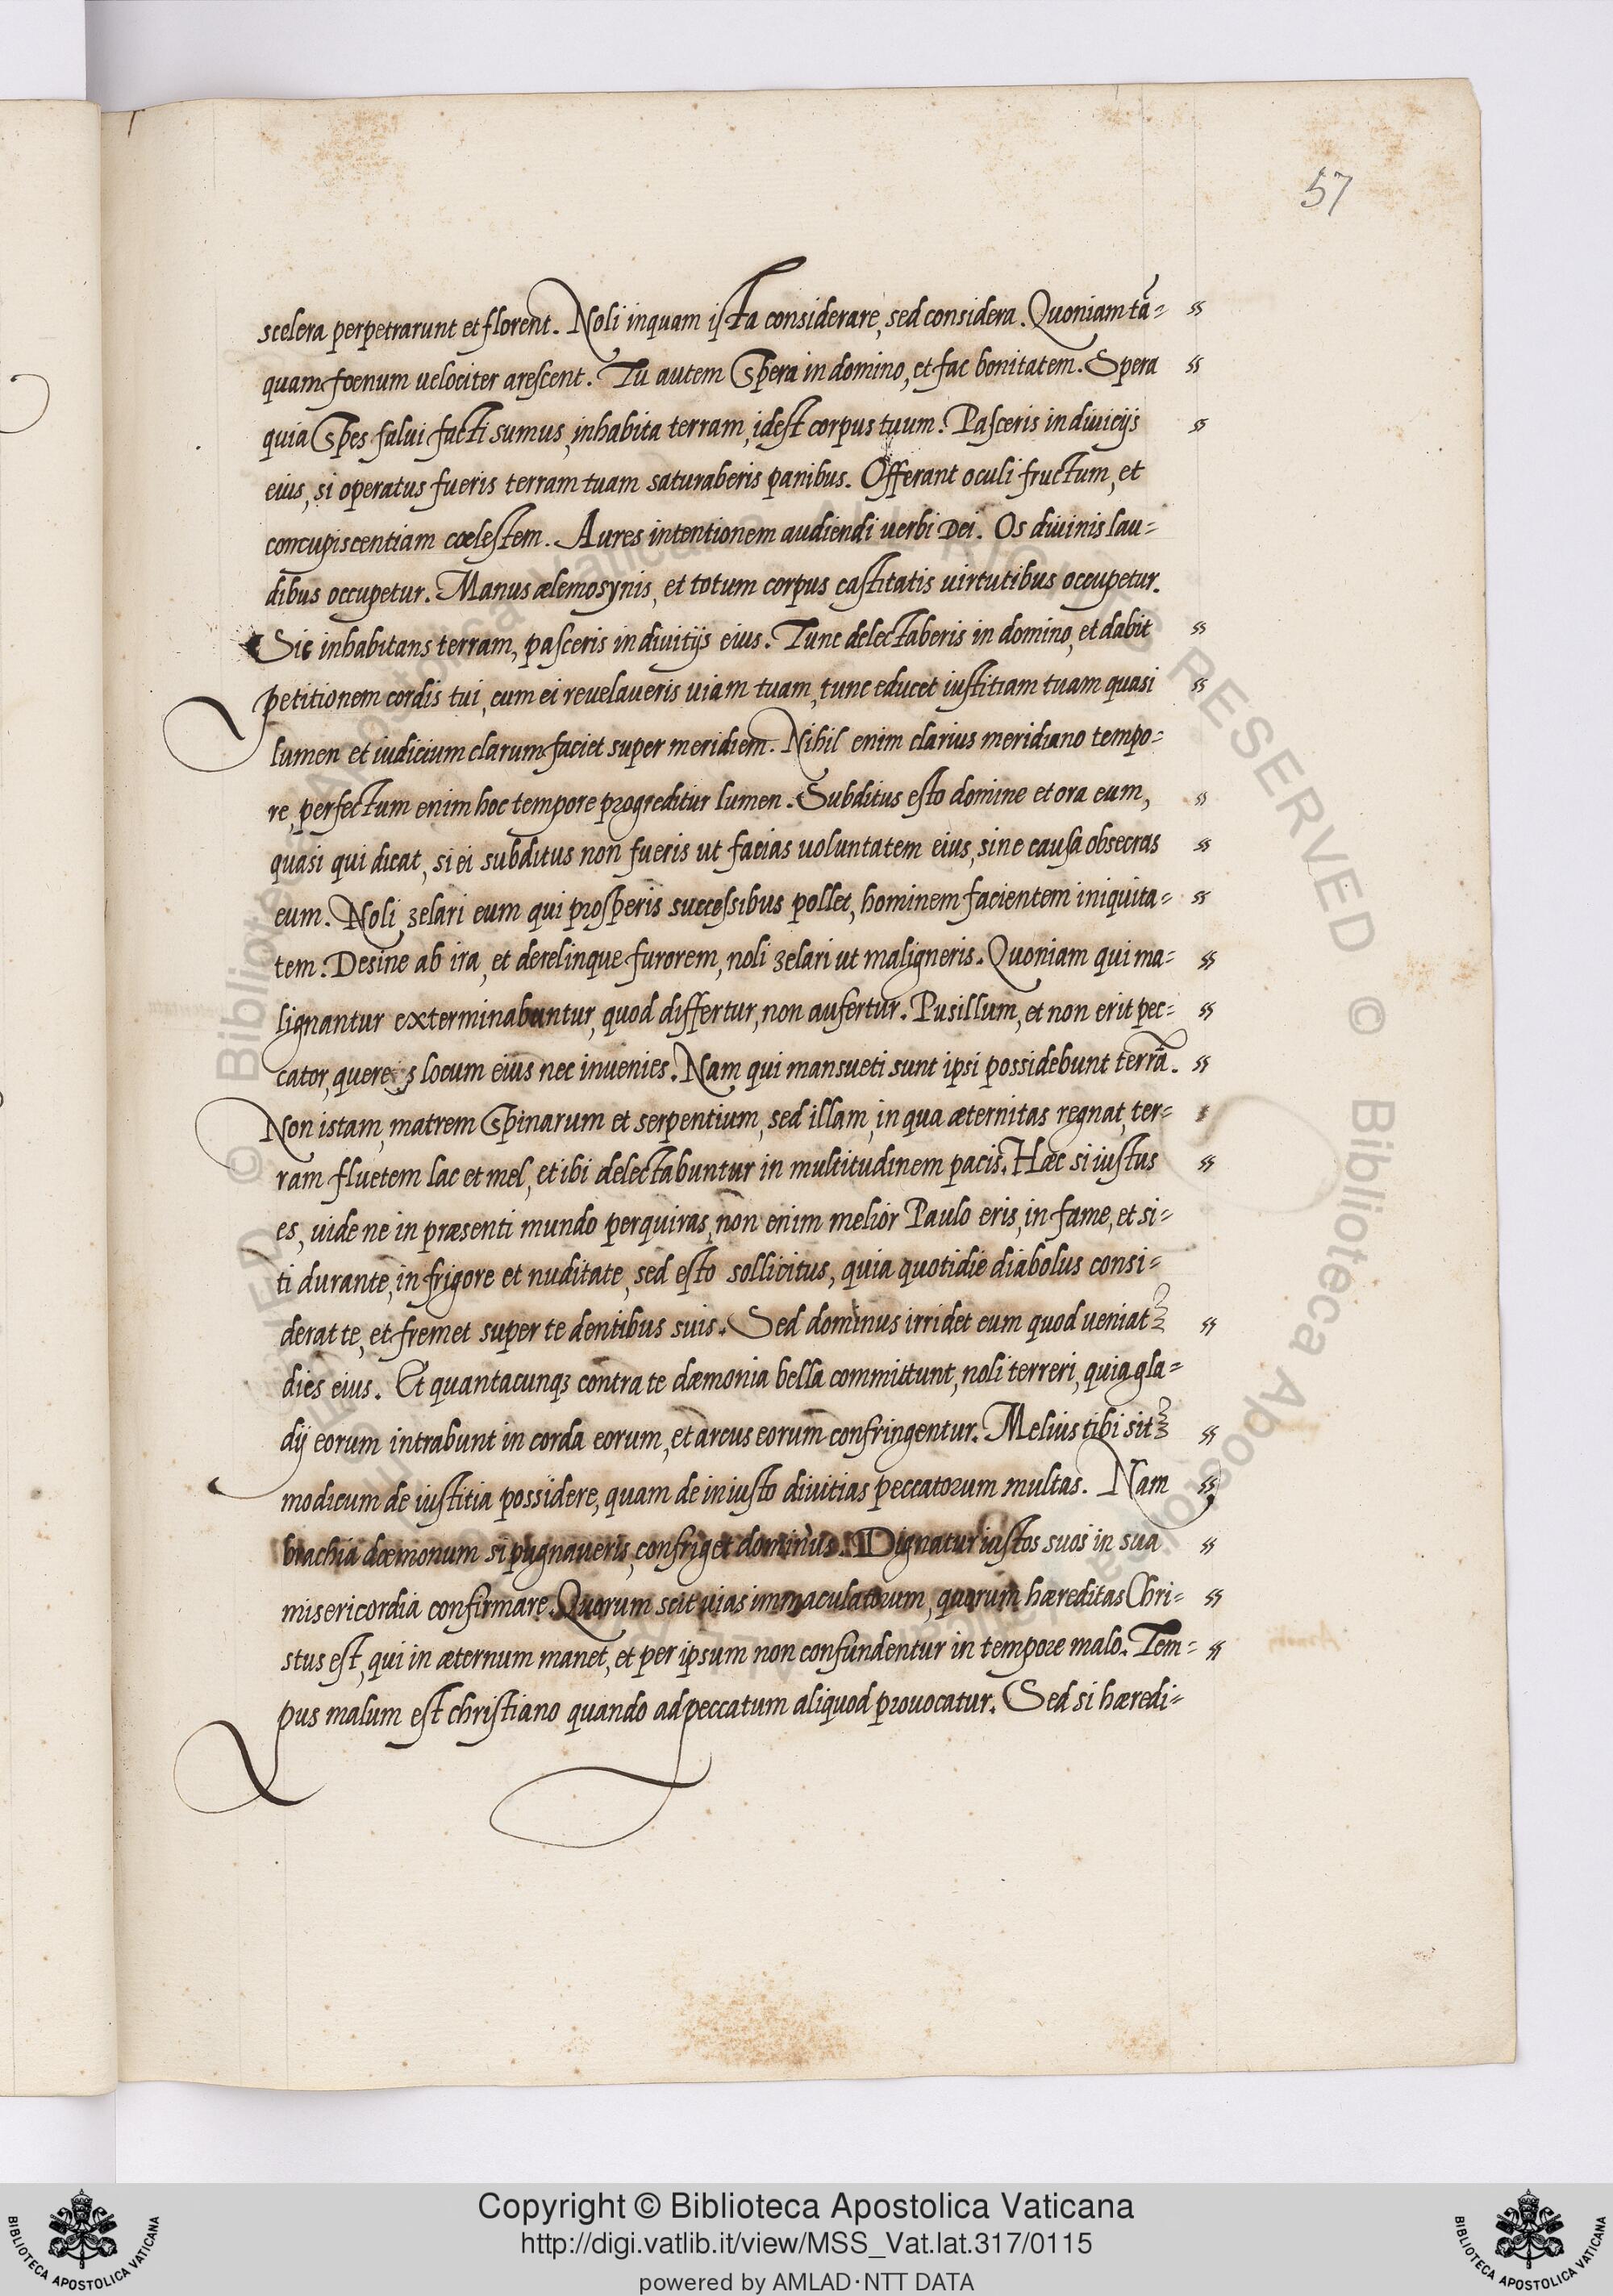 57
scelera perpetrarunt et florent. Noli inquam ista considerare, sed considera. Quoniam tã= ss
quam foenum uelociter arescent. Tu autem spera in domino, et fac bonitatem. Spera ss
quia spes salui facti sumus, inhabita terram, idest corpus tuum. Pasceris in diuicijs ss
eius, si operatus fueris terram tuam saturaberis panibus. Offerant oculi fructum, et
concupiscentiam cœlestem. Aures intentionem audiendi uerbi Dei. Os diuinis lau=
dibus occupetur. Manus ælemosynis, et totum corpus castitatis uirtutibus occupetur.
Sic inhabitans terram, pasceris in diuitijs eius. Tunc delectaberis in domino, et dabit ss
petitionem cordis tui, cum ei reuelaueris uiam tuam, tunc educet iustitiam tuam quasi ss
lumen et iudicium clarum faciet super meridiem. Nihil enim clarius meridiano tempo=
re, perfectum enim hoc tempore progreditur lumen. Subditus esto domine et ora eum, ss
quasi qui dicat, si ei subditus non fueris ut facias uoluntatem eius, sine causa obsecras ss
eum. Noli zelari eum qui prosperis successibus pollet, hominem facientem iniquita= ss
tem. Desine ab ira, et derelinque furorem, noli zelari ut maligneris. Quoniam qui ma= ss
lignantur exterminabuntur, quod differtur, non aufertur. Pusillum, et non erit pec= ss
cator, locum eius nec inuenies. Nam qui mansueti sunt ipsi possidebunt terrã. ss
Non istam, matrem spinarum et serpentium, sed illam, in qua æternitas regnat, ter=
ram fluetem lac et mel, et ibi delectabuntur in multitudinem pacis. Hæc si iustus ss
es, uide ne in præsenti mundo perquiras, non enim melior Paulo eris, in fame, et si=
ti durante, in frigore et nuditate, sed esto sollicitus, quia quotidie diabolus consi=
derat te, et fremet super te dentibus suis. Sed dominus irridet eum quod ueniat ss
dies eius. Et quantacunqꝫ contra te dæmonia bella committunt, noli terreri, quia gla=
dij eorum intrabunt in corda eorum, et arcus eorum confringentur. Melius tibi sit ss
modicum de iustitia possidere, quam de iniusto diuitias peccatorum multas. Nam ss
brachia dæmonum si pugnaueris, confriget dominus. Dignatur iustos suos in sua ss
misericordia confirmare. Quorum scit uias immaculatorum, quorum hæreditas Chri= ss
stus est, qui in æternum manet, et per ipsum non confundentur in tempore malo. Tem= ss
pus malum est christiano quando ad peccatum aliquod prouocatur. Sed si hæredi=
Copyright © Biblioteca Apostolica Vaticana
http://digi.vatlib.it/view/MSS_Vat.lat.317/0115
powered by AMLAD·NTT DATA
BIBLIOTECA APOSTOLICA VATICANA
BIBLIOTECA APOSTOLICA VATICANA